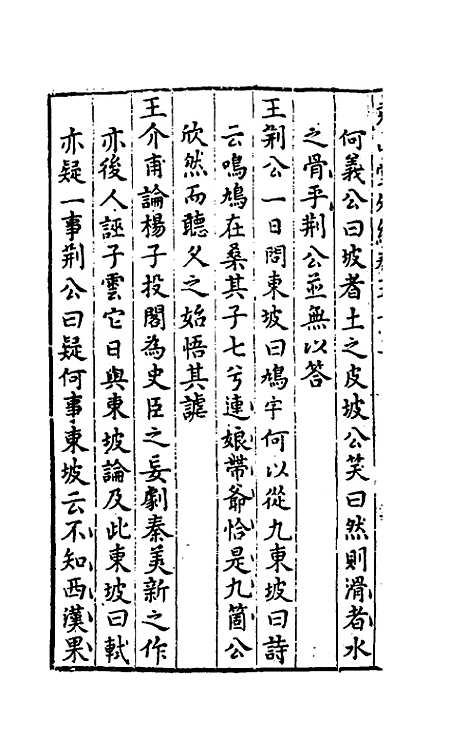 何義公曰坡者土之皮坡公笑曰然則滑者水
之骨乎荆公並無以答
王荆公一日問東坡曰鳩字何以從九東坡曰詩
云鳴鳩在桑其子七兮連娘帶爺恰是九箇公
欣然而聽久之始悟其謔
王介甫論楊子投閣為史臣之妄劇秦美新之作
亦後人誣子雲它日與東坡論及此東坡曰軾
亦疑一事荆公曰疑何事東坡云不知西漢果